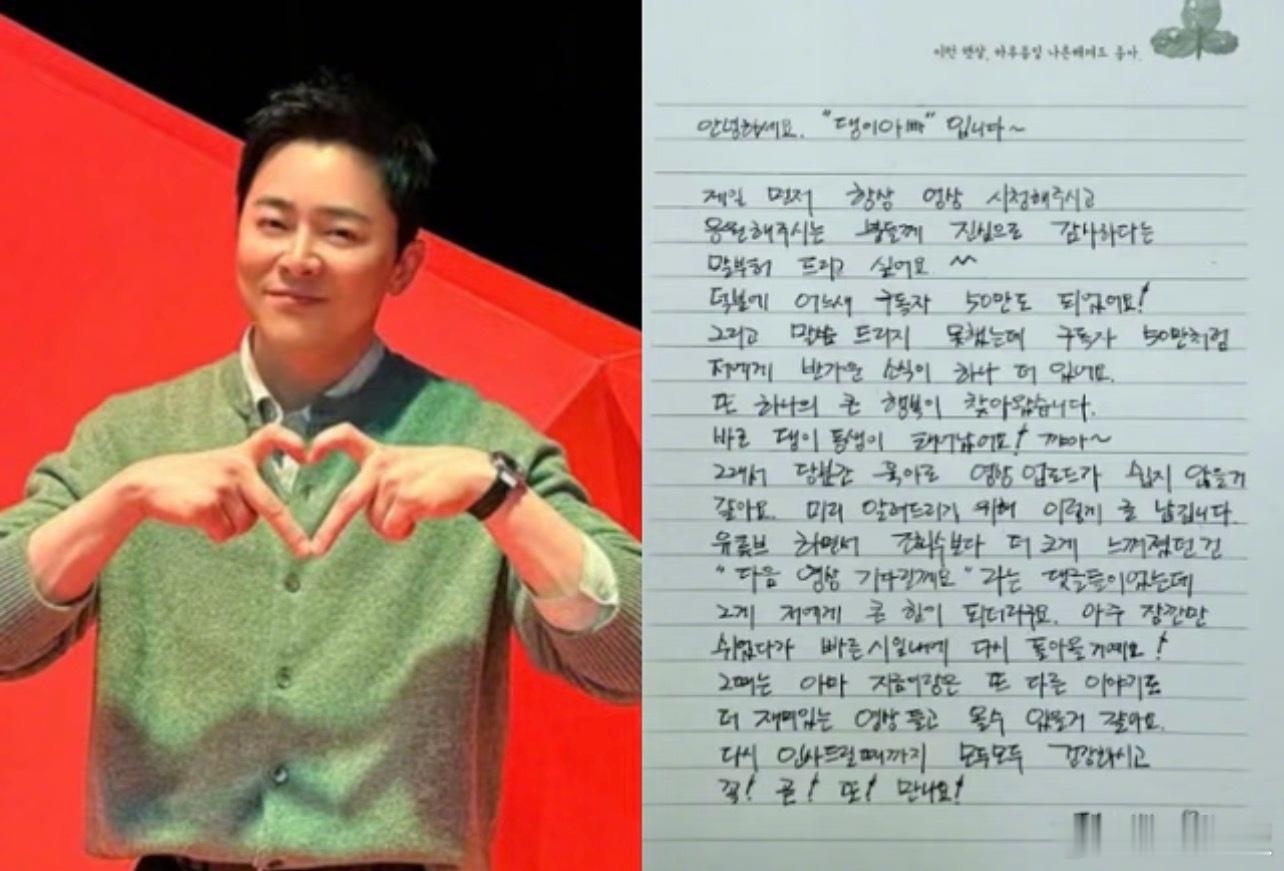 이런 햇살, 하루종일 나른해져도 좋아.
안녕하세요. "댕이아빠" 입니다~
제일 먼저 항상 영상 시청해주시고
응원해주시는 분들께 진심으로 감사하다는
말부터 드리고 싶어요 ^^
덕분에 어느새 구독자 50만도 되었어요!
그리고 말씀 드리지 못했는데 구독자 50만처럼
저에게 반가운 소식이 하나 더 있어요.
또 하나의 큰 행복이 찾아왔습니다.
바로 댕이 동생이 태어났어요! 꺄아~
그래서 당분간 육아로 영상 업로드가 쉽지 않을거
같아요. 미리 알려드리기 위해 이렇게 글 남깁니다.
유튜브 하면서 조회수보다 더 크게 느껴졌던 건
"다음 영상 기다릴께요" 라는 댓글들이었는데
그게 저에게 큰 힘이 되더라구요. 아주 잠깐만
쉬었다가 빠른시일내에 다시 돌아올거예요!
그때는 아마 지금이랑은 또 다른 이야기로
더 재미있는 영상 들고 올수 있을거 같아요.
다시 인사드릴때까지 모두모두 건강하시고
꼭! 곧! 또! 만나요!